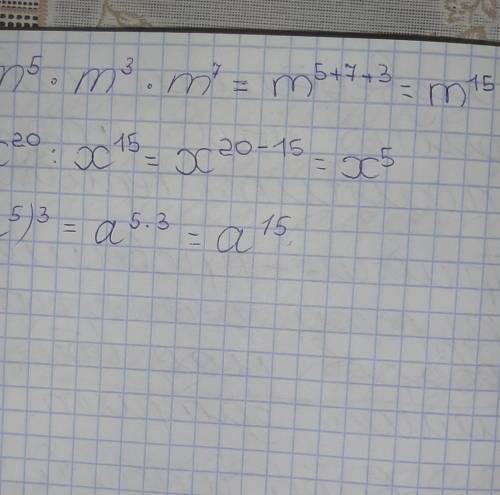 m⁵ · m³ · m⁷ = m⁵⁺⁷⁺³ = m¹⁵
x²⁰ : x¹⁵ = x²⁰⁻¹⁵ = x⁵
⁵)³ = a⁵·³ = a¹⁵